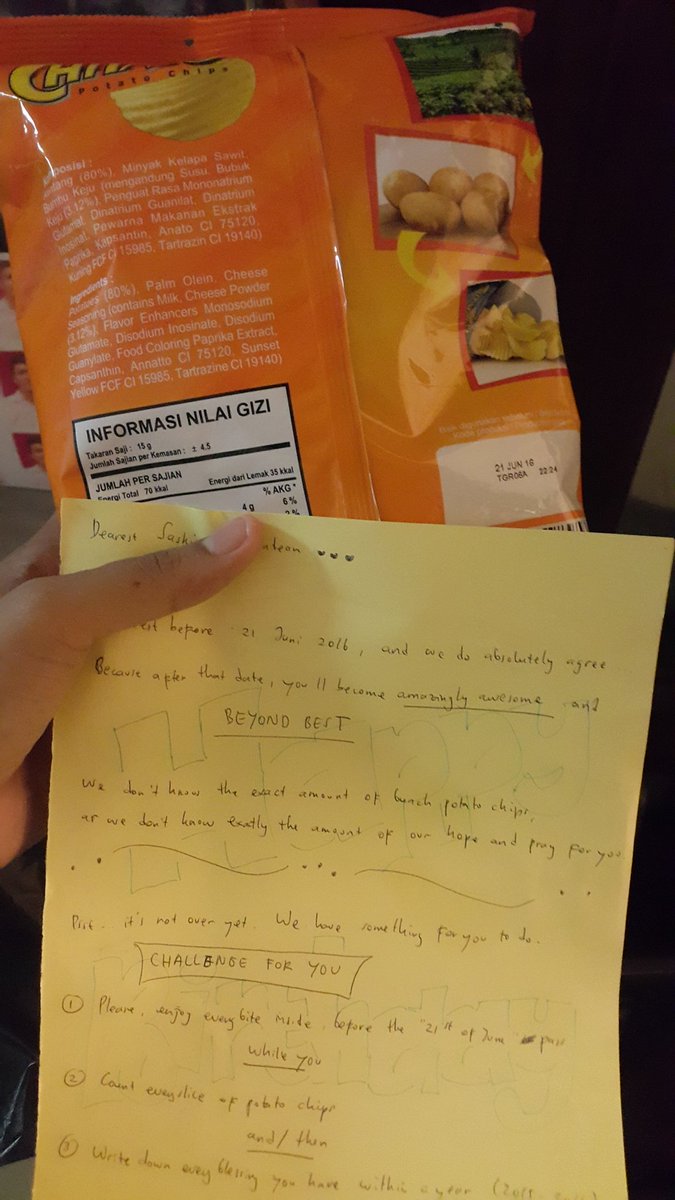 Potato Chips
posisi :
(80%), Minyak Kelapa Sawit,
Bumbu Keju (mengandung Susu, Bubuk
Keju (3.12%), Penguat Rasa Mononatrium
Glutamat, Dinatrium Guanilat, Dinatrium
Inosinat, Pewarna Makanan Ekstrak
Paprika, Kapsantin, Anato CI 75120,
Kuning FCF CI 15985, Tartrazin CI 19140)
Ingredients :
Potatoes (80%), Palm Olein, Cheese
Seasoning (contains Milk, Cheese Powder
(3.12%), Flavor Enhancers Monosodium
Glutamate, Disodium Inosinate, Disodium
Guanylate, Food Coloring Paprika Extract,
Capsanthin, Annatto CI 75120, Sunset
Yellow FCF CI 15985, Tartrazine CI 19140)
INFORMASI NILAI GIZI
Takaran Saji : 15 g
Jumlah Sajian per Kemasan : ± 4.5
JUMLAH PER SAJIAN
Energi Total 70 kkal Energi dari Lemak 35 kkal
% AKG*
4 g 6%
Baik digunakan sebelum :
Kode produksi :
21 JUN 16
TGR06A 22:24
Dearest
before 21 Juni 2016, and we do absolutely agree
Because after that date, you'll become amazingly awesome and
BEYOND BEST
We don't know the exact amount of bunch potato chips,
as we don't know exactly the amount of our hope and pray for you.
Psst... it's not over yet. We have something for you to do.
CHALLENGE FOR YOU
① Please, enjoy every bite inside, before the "21st of June" pass
while you
② Count every slice of potato chips
and/then
③ Write down every blessing you have within a year